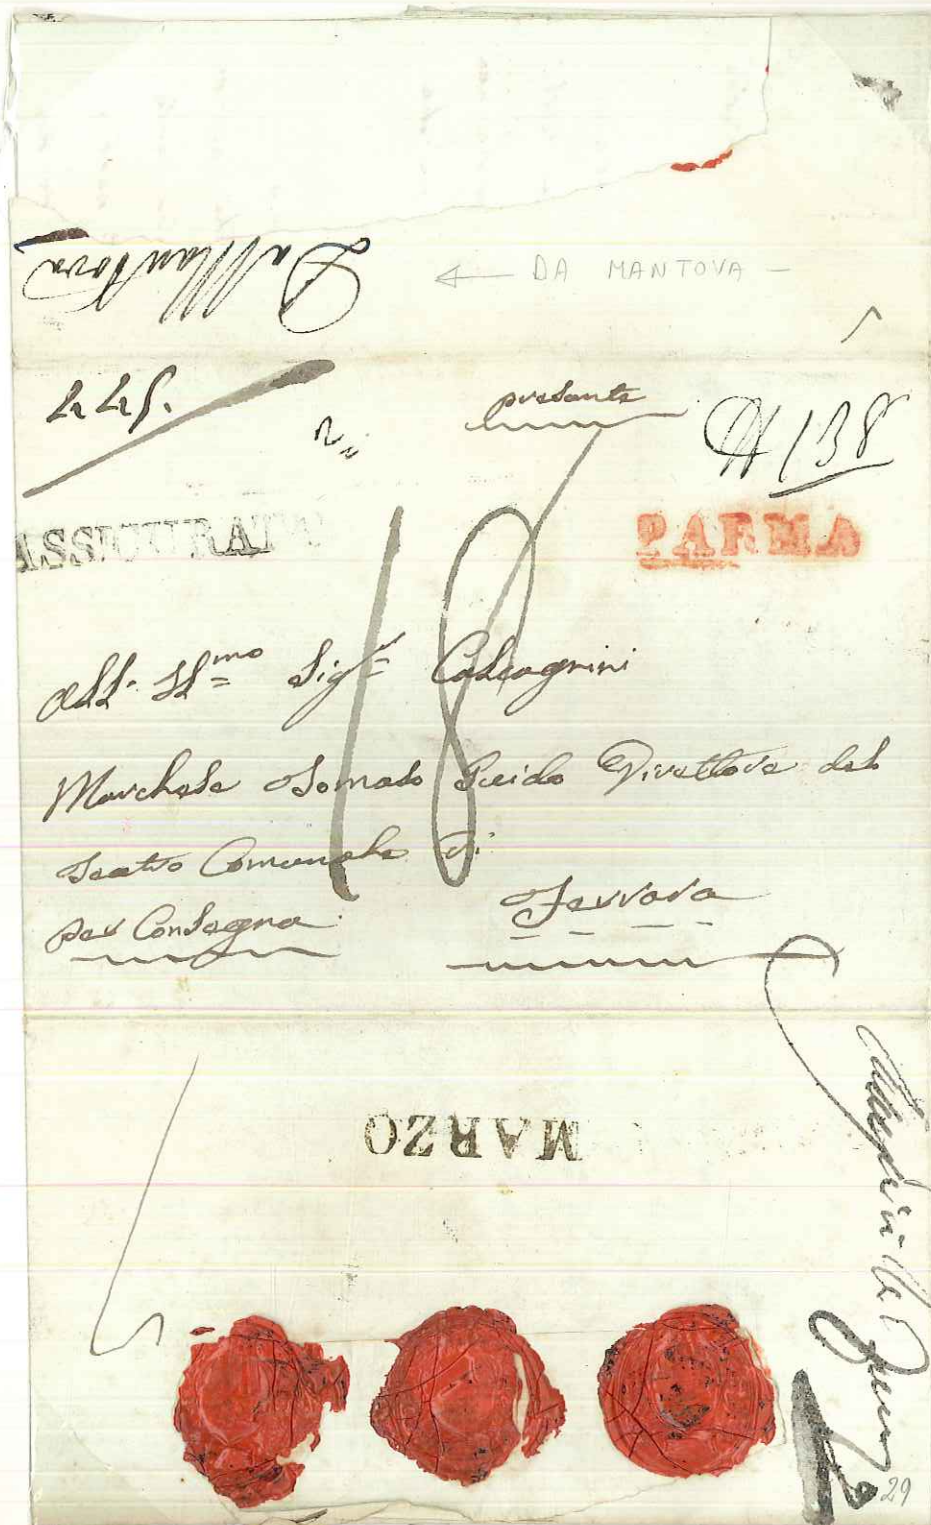 Da Mantova
← DA MANTOVA —
presante
ASSICURATO
PARMA
18
All. Ill.mo Sig.r Calcagnini
Marchese Tomaso Guido Direttore del
Teatro Comunale di
Ferrara
per Consegna
MARZO
29